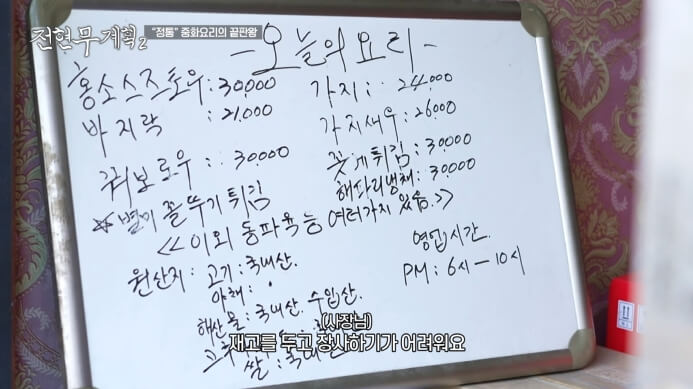 전현무계획2
"정통" 중화요리의 끝판왕
-오늘의요리-
홍소스즈토우:30,000
바지락 :21,000
꿔보로우::30000
☆별미 꼴뚜기튀김
가지:: 24,000
가지새우:26000
꽃게튀김:30,000
해파리냉채:30000
<<이외 동파육 등 여러가지 있음.>>
원산지: 고기:국내산.
야채:
해산물:국내산. 수입산.
쌀:
영업시간.
PM: 6시-10시
(사장님)
재고를 두고 장사하기가 어려워요